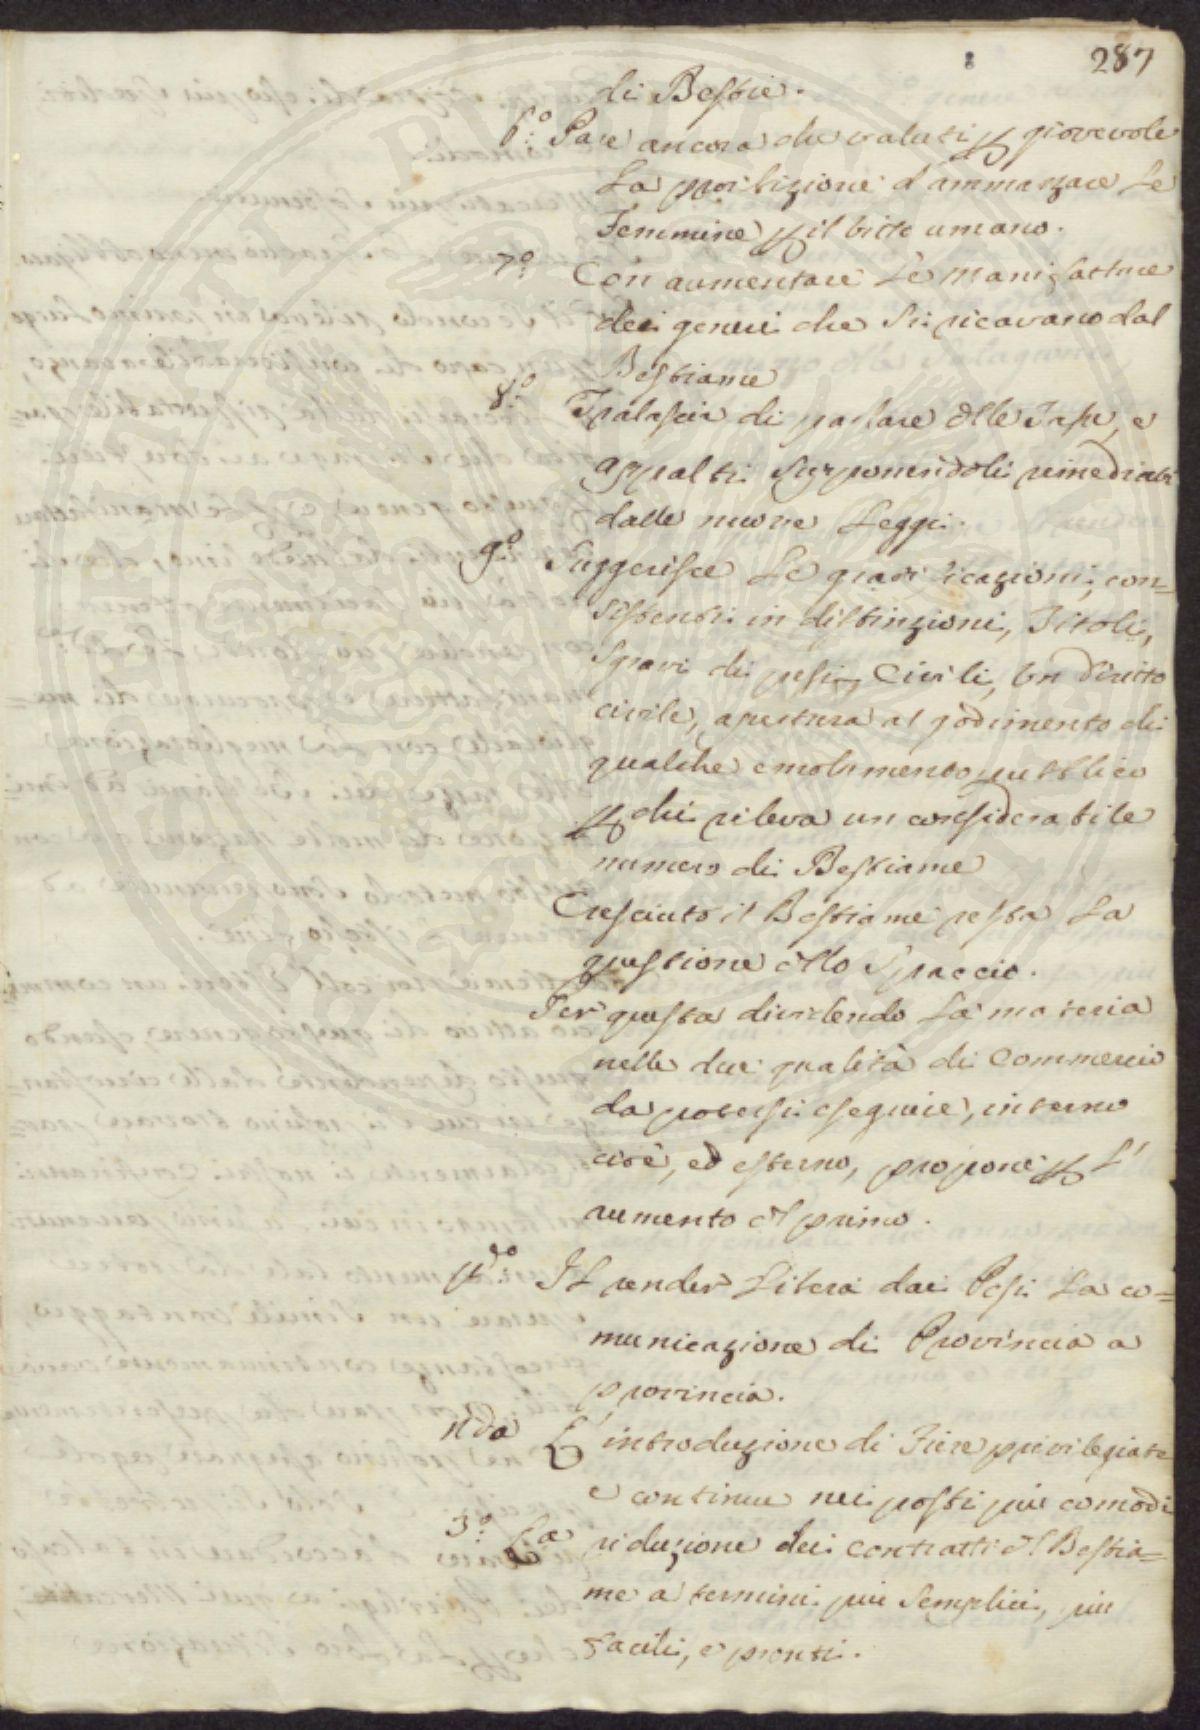 287
di Bestie.
6.º Pare ancora che valuti p giovevole
La proibizione d'ammazzare Le
Femmine p il vitto umano.
7.º Con aumentare Le Manifatture
dei generi che Si ricavano dal
Bestiame
8.º Tralascia di parlare dlle Tasse, e
appalti Supponendoli rimediati
dalle nuove Leggi.
9.º Suggerisce Le gratificazioni, con=
sistenti in distinzioni, Titoli,
Sgravi di pesi Civili, Un diritto
civile, apertura al godimento di
qualche emolumento pubblico
p chi rileva un considerabile
numero di Bestiame
Cresciuto il Bestiame resta La
questione dllo Spaccio.
Per questa dividendo La materia
nelle due qualità di Commercio
da potersi eseguire, interno
cioè, ed esterno, propone p L'
aumento dl primo.
pº: Il render Libera dai Pesi La co=
municazione di Provincia a
provincia.
nda L'introduzione di Fiere privilegiate
e continue nei posti più comodi
3.º La riduzione dei contratti dl Bestia=
me a termini piu Semplici, piu
facili, e pronti.